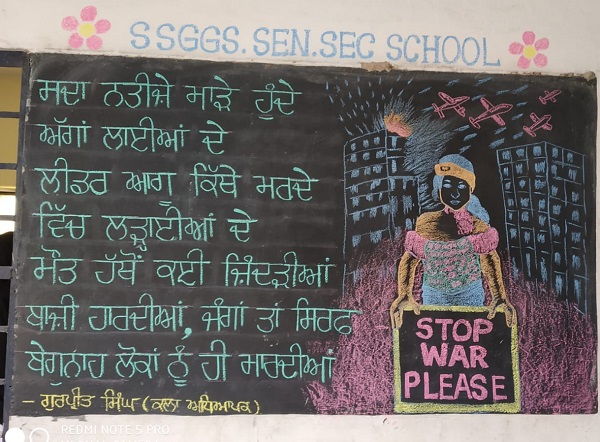 SSGGS. SEN. SEC SCHOOL
ਸਦਾ ਨਤੀਜੇ ਮਾੜੇ ਹੁੰਦੇ
ਅੱਗਾਂ ਲਾਈਆਂ ਦੇ
ਲੀਡਰ ਆਗੂ ਕਿੱਥੇ ਮਰਦੇ
ਵਿੱਚ ਲੜਾਈਆਂ ਦੇ
ਮੌਤ ਹੱਥੋਂ ਕਈ ਜ਼ਿੰਦੜੀਆਂ
ਬਾਜ਼ੀ ਹਾਰਦੀਆਂ, ਜੰਗਾਂ ਤਾਂ ਸਿਰਫ
ਬੇਗੁਨਾਹ ਲੋਕਾਂ ਨੂੰ ਹੀ ਮਾਰਦੀਆਂ
- ਗੁਰਪ੍ਰੀਤ ਸਿੰਘ (ਕਲਾ ਅਧਿਆਪਕ)
STOP
WAR
PLEASE
REDMI NOTE 5 PRO